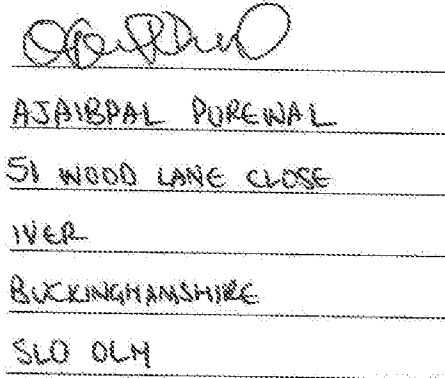 AJAIBPAL PUREWAL
51 WOOD LANE CLOSE
IVER
BUCKINGHAMSHIRE
SL0 0LH